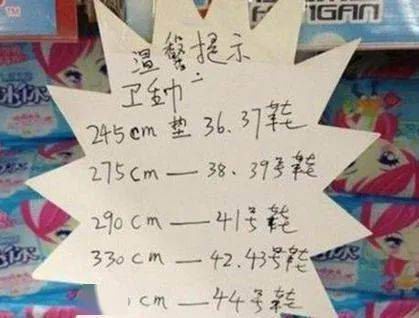 ™
ANGAN
温馨提示
卫生巾:
245cm 垫 36.37鞋
275cm—38.39号鞋
290cm—41号鞋
330cm—42.43号鞋
cm—44号鞋
冰冰